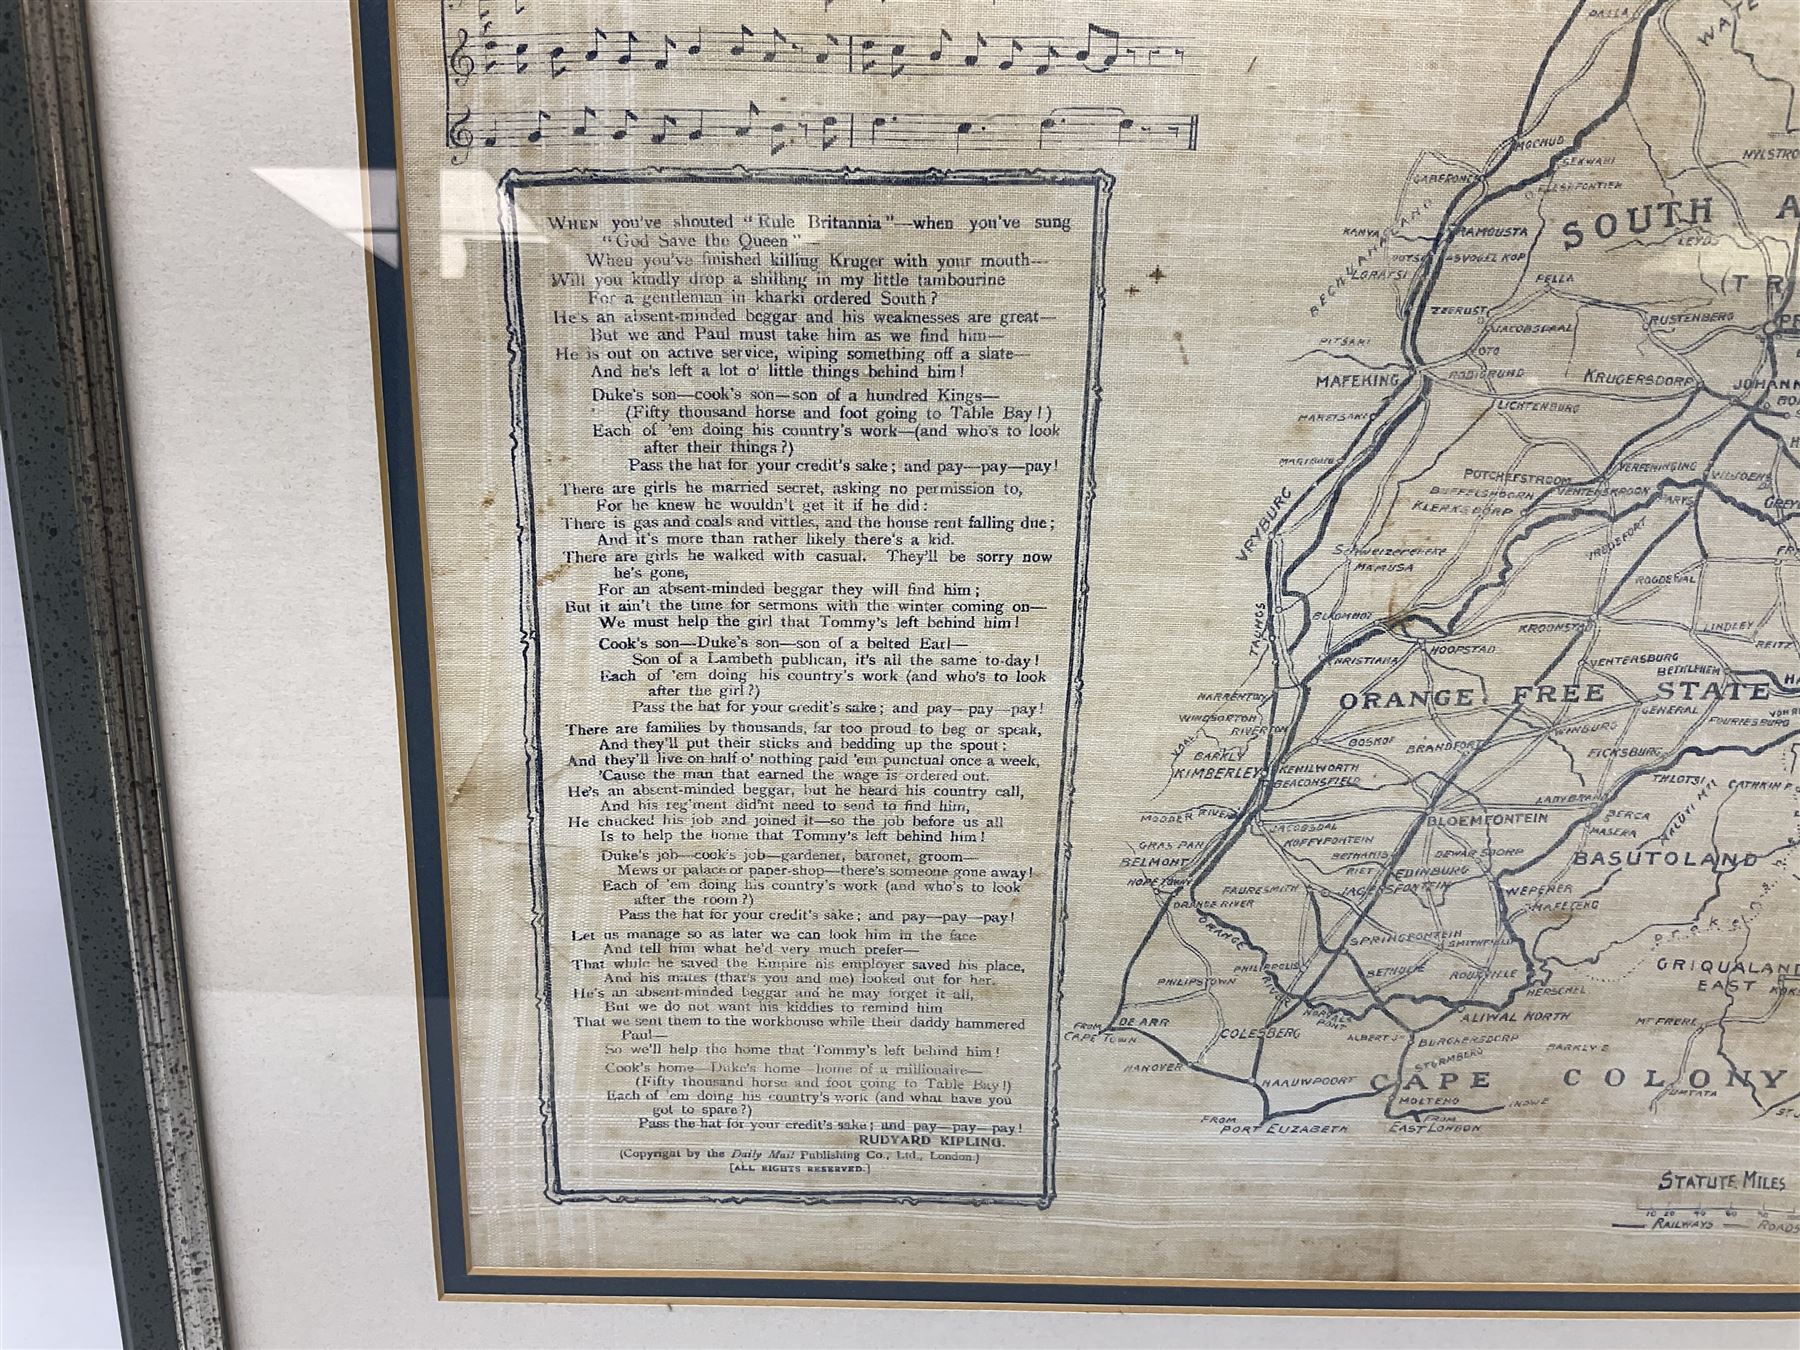 WHEN you've shouted "Rule Britannia"—when you've sung
"God Save the Queen"—
When you've finished killing Kruger with your mouth—
Will you kindly drop a shilling in my little tambourine
For a gentleman in kharki ordered South?
He's an absent-minded beggar and his weaknesses are great—
But we and Paul must take him as we find him—
He is out on active service, wiping something off a slate—
And he's left a lot o' little things behind him!
Duke's son—cook's son—son of a hundred Kings—
(Fifty thousand horse and foot going to Table Bay!)
Each of 'em doing his country's work—(and who's to look
after their things?)
Pass the hat for your credit's sake; and pay—pay—pay!
There are girls he married secret, asking no permission to,
For he knew he wouldn't get it if he did:
There is gas and coals and vittles, and the house rent falling due;
And it's more than rather likely there's a kid.
There are girls he walked with casual. They'll be sorry now
he's gone,
For an absent-minded beggar they will find him;
But it ain't the time for sermons with the winter coming on—
We must help the girl that Tommy's left behind him!
Cook's son—Duke's son—son of a belted Earl—
Son of a Lambeth publican, it's all the same to-day!
Each of 'em doing his country's work (and who's to look
after the girl?)
Pass the hat for your credit's sake; and pay—pay—pay!
There are families by thousands, far too proud to beg or speak,
And they'll put their sticks and bedding up the spout;
And they'll live on half o' nothing paid 'em punctual once a week,
'Cause the man that earned the wage is ordered out.
He's an absent-minded beggar, but he heard his country call,
And his reg'ment did'nt need to send to find him,
He chucked his job and joined it—so the job before us all
Is to help the home that Tommy's left behind him!
Duke's job—cook's job—gardener, baronet, groom—
Mews or palace or paper-shop—there's someone gone away!
Each of 'em doing his country's work (and who's to look
after the room?)
Pass the hat for your credit's sake; and pay—pay—pay!
Let us manage so as later we can look him in the face
And tell him what he'd very much prefer—
That while he saved the Empire his employer saved his place,
And his mates (that's you and me) looked out for her.
He's an absent-minded beggar and he may forget it all,
But we do not want his kiddies to remind him
That we sent them to the workhouse while their daddy hammered
Paul—
So we'll help the home that Tommy's left behind him!
Cook's home—Duke's home—home of a millionaire—
(Fifty thousand horse and foot going to Table Bay!)
Each of 'em doing his country's work (and what have you
got to spare?)
Pass the hat for your credit's sake; and pay—pay—pay!
RUDYARD KIPLING.
(Copyright by the Daily Mail Publishing Co., Ltd., London.)
[ALL RIGHTS RESERVED.]
MOCHUD
SEKWANI
GABERONES
BECHUANALAND
SOUTH A
LEYDS
KANYA
RAMOUSTA
PELLA
ZEERUST
JACOBSDAAL
RUSTENBERG
PITSANI
OTO
MAFEKING
RODIGRUND
KRUGERSDORP
JOHANN
LICHTENBURG
MARETSANI
MARIBURG
POTCHEFSTROOM
VEREENINGING
BUFFELSHOORN
VENTERSKROON
PARYS
KLERKSDORP
VRYBURG
VREDEFORT
MAMUSA
ROODEWAL
TAUNGS
KROONSTAD
LINDLEY
REITZ
CHRISTIANA
HOOPSTAD
VENTERSBURG
BETHLEHEM
WARRENTON
ORANGE FREE STATE
WINDSORTON
GENERAL
FOURIESBURG
RIVERTON
VAAL
BOSHOF
BRANDFORT
WINBURG
BARKLY
FICKSBURG
KIMBERLEY
KENILWORTH
BEACONSFIELD
THLOTSI
CATHKIN P.
LADYBRAND
MALUTI MTS
MODDER RIVER
BLOEMFONTEIN
BERCA
JACOBSDAL
MASERA
KOFFYFONTEIN
GRAS PAN
BETHANIE
DEWARSDORP
BASUTOLAND
BELMONT
RIET
EDINBURG
HOPETOWN
FAURESMITH
JAGERSFONTEIN
WEPENER
MAFETENG
ORANGE RIVER
ORANGE RIVER
SPRINGFONTEIN
SMITHFIELD
PHILIPPOLIS
BETHULIE
ROUXVILLE
GRIQUALAND
EAST
PHILIPSTOWN
HERSCHEL
NORVALS
PONT
ALIWAL NORTH
FROM
CAPE TOWN
DE AAR
COLESBERG
MT FRERE
ALBERT J
BURGHERSDORP
BARKLY E
STORMBERG
HANOVER
NAAUWPOORT
CAPE COLONY
MOLTENO
INDWE
UMTATA
FROM
PORT ELIZABETH
FROM
EAST LONDON
STATUTE MILES
10 20 40 60
RAILWAYS ROADS